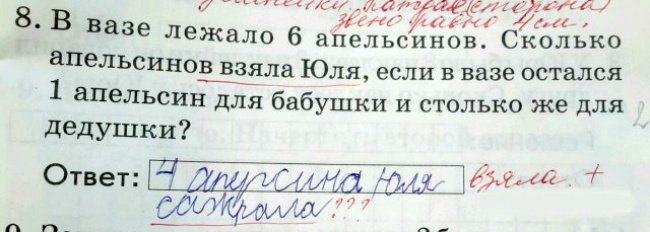 звено равно 4 см.
8. В вазе лежало 6 апельсинов. Сколько
апельсинов взяла Юля, если в вазе остался
1 апельсин для бабушки и столько же для
дедушки?
2
Ответ: 4 апурсина Юля взяла. +
сажрала ???